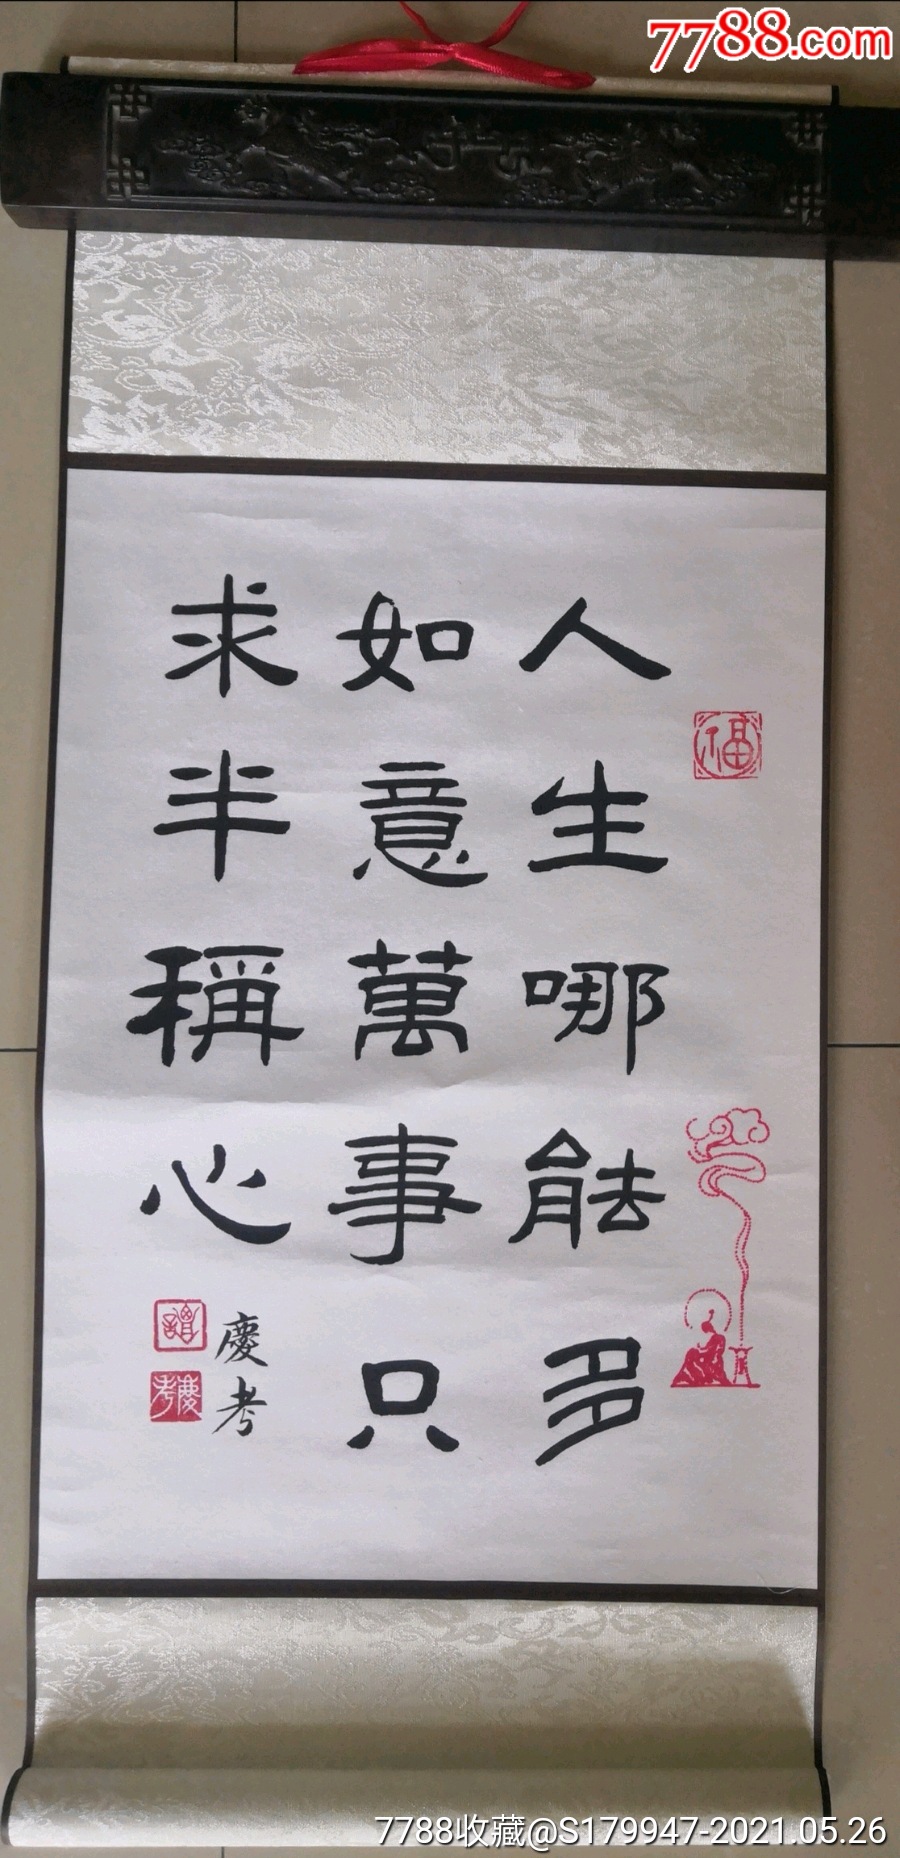 7788.com
福
人生哪能多
如意萬事只
求半稱心
慶考
慶考
7788收藏@S179947-2021.05.26